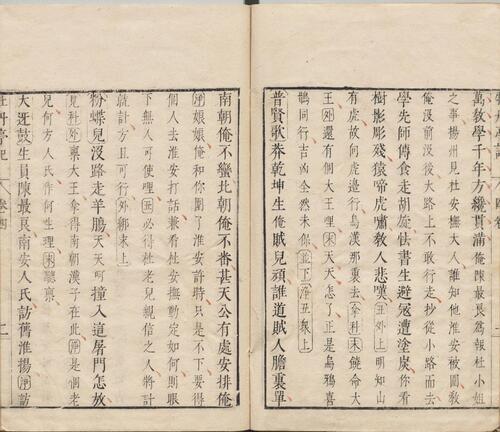 萬教學千年方纔貫滿俺陳最良爲報杜小姐
之事揚州見杜安撫大人誰知他淮安被圍教
俺沒前沒後大路上不敢行走抄從小路而去
學先師傳食走胡旋怯書生避寇遭塗炭你看
樹影彫殘猿啼虎嘯教人悲嘆丑外上明知山
有虎故向虎邊行鳥漢那裏去拿杜末饒命大
王外還有個大王哩末天天怎了正是烏鴉喜
鵲同行吉凶全然未保並下淨丑衆上
普賢歌莽乾坤生俺賊兒頑誰道賊人膽裏單
南朝俺不蠻北朝俺不番甚天公有處安排俺
淨娘娘俺和你圍了淮安許時只是不下要得
個人去淮安打話兼看杜安撫動定如何則眼
下無人可使哩丑必得杜老兒親信之人將計
就計方且可行外綁末上
粉蝶兒沒路走羊腸天天呵撞入道屠門怎放
見杜外禀大王拿得南朝漢子在此淨是個老
兒何方人氏作何生理末聽禀
大迓鼓生員陳最良南安人氏訪舊淮揚淨訪
牡丹亭記 卷四 二